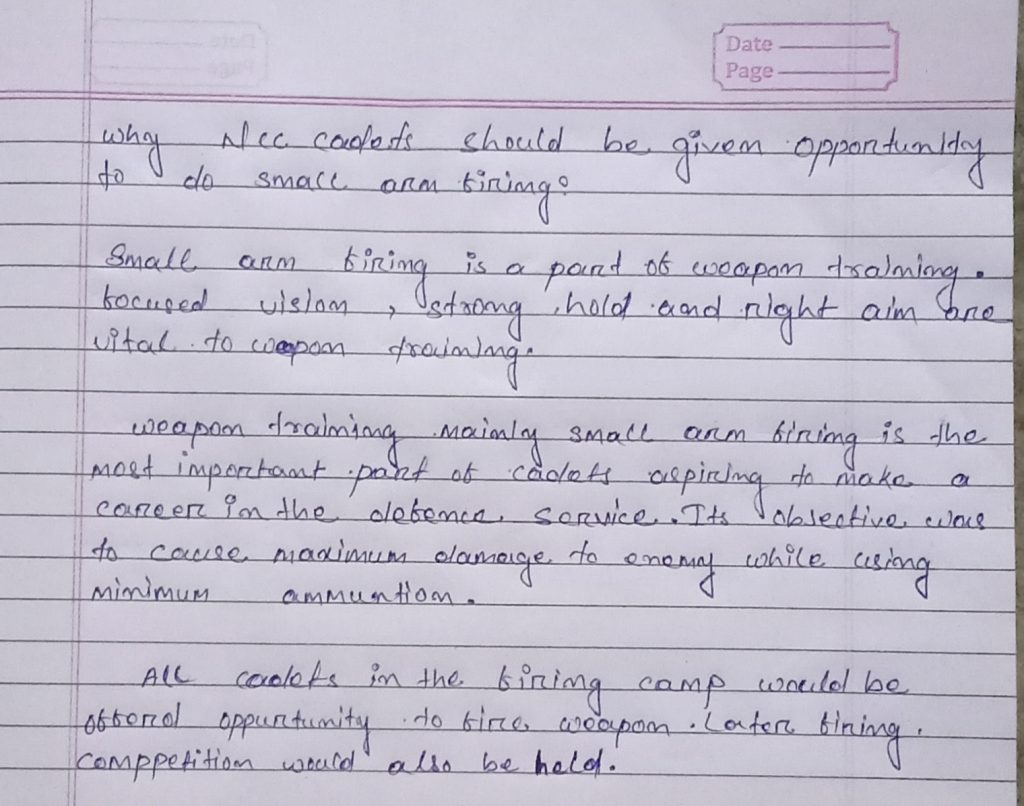 Date
Page
why Ncc cadets should be given opportunity
to do small arm firing?
Small arm firing is a part of weapon training.
focused vision, strong hold and right aim are
vital to weapon training.
weapon training mainly small arm firing is the
most important part of cadets aspiring to make a
career in the defence service. Its objective was
to cause maximum damage to enemy while using
minimum ammuntion.
All cadets in the firing camp would be
offerd oppurtunity to fire weapon. Later firing.
comppetition would also be held.